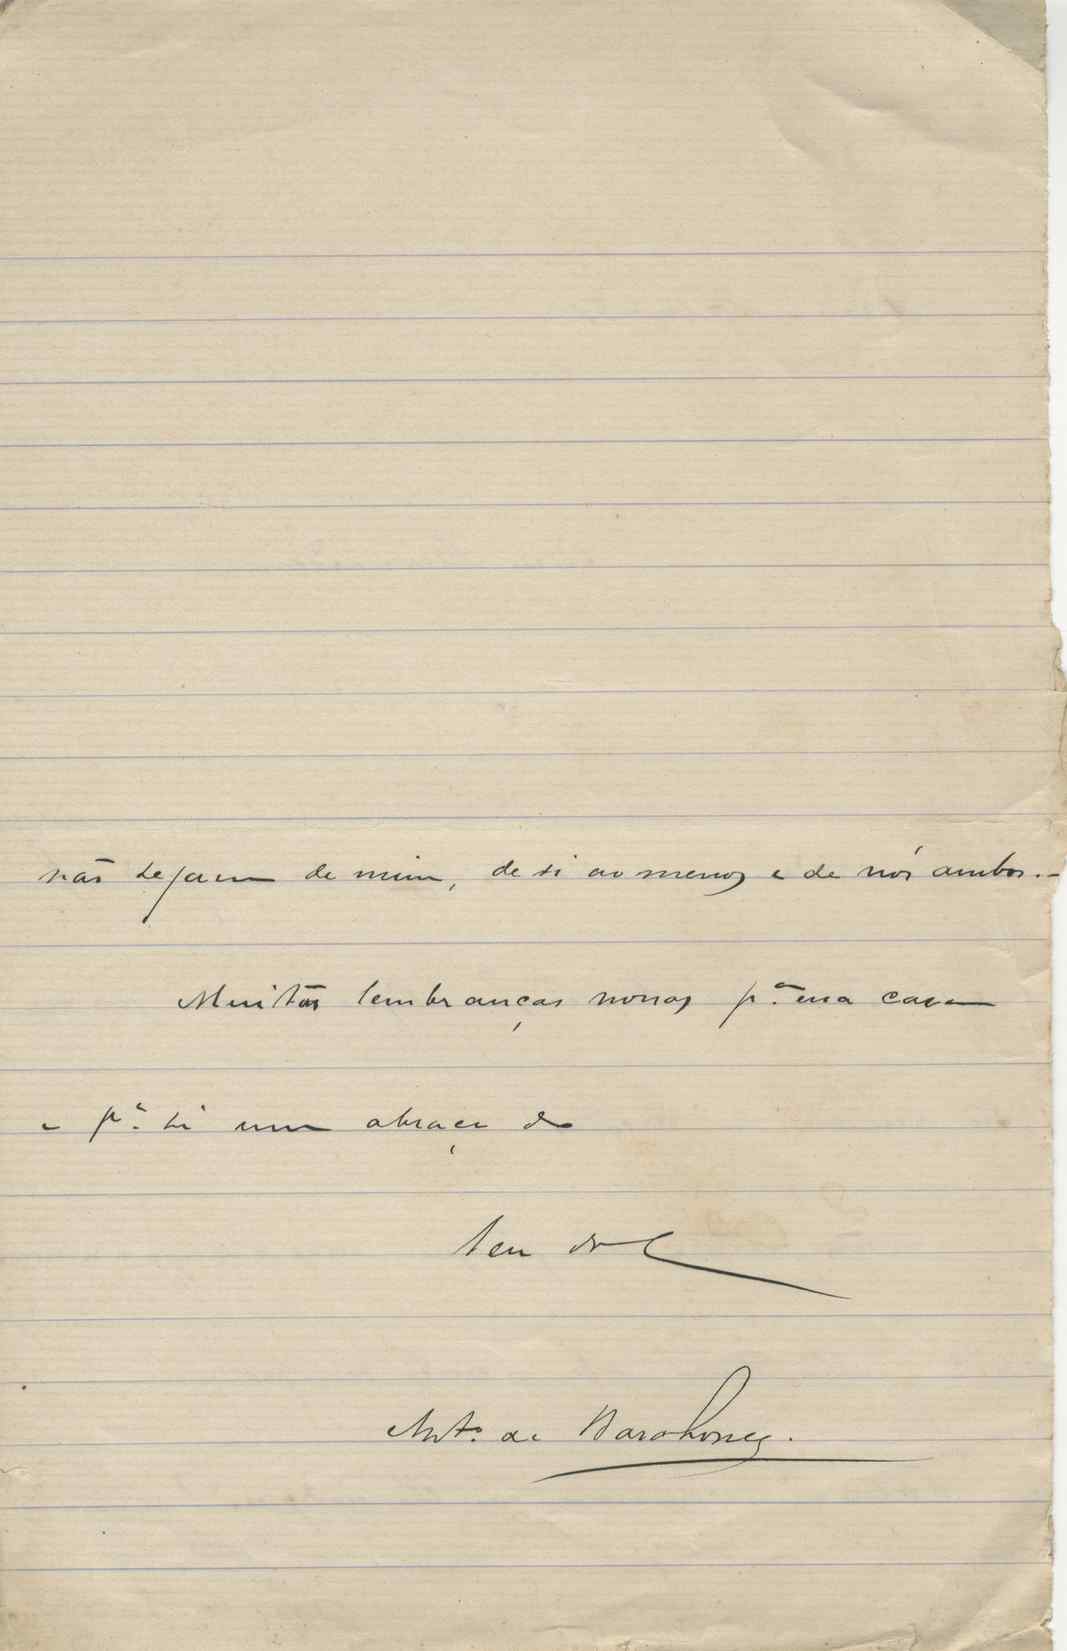 não sejam de mim, de si ao menos e de nós ambos.—
Muitas lembranças nossas p.ª essa casa
e p.ª si um abraço do
seu
Antº. de Barahona.